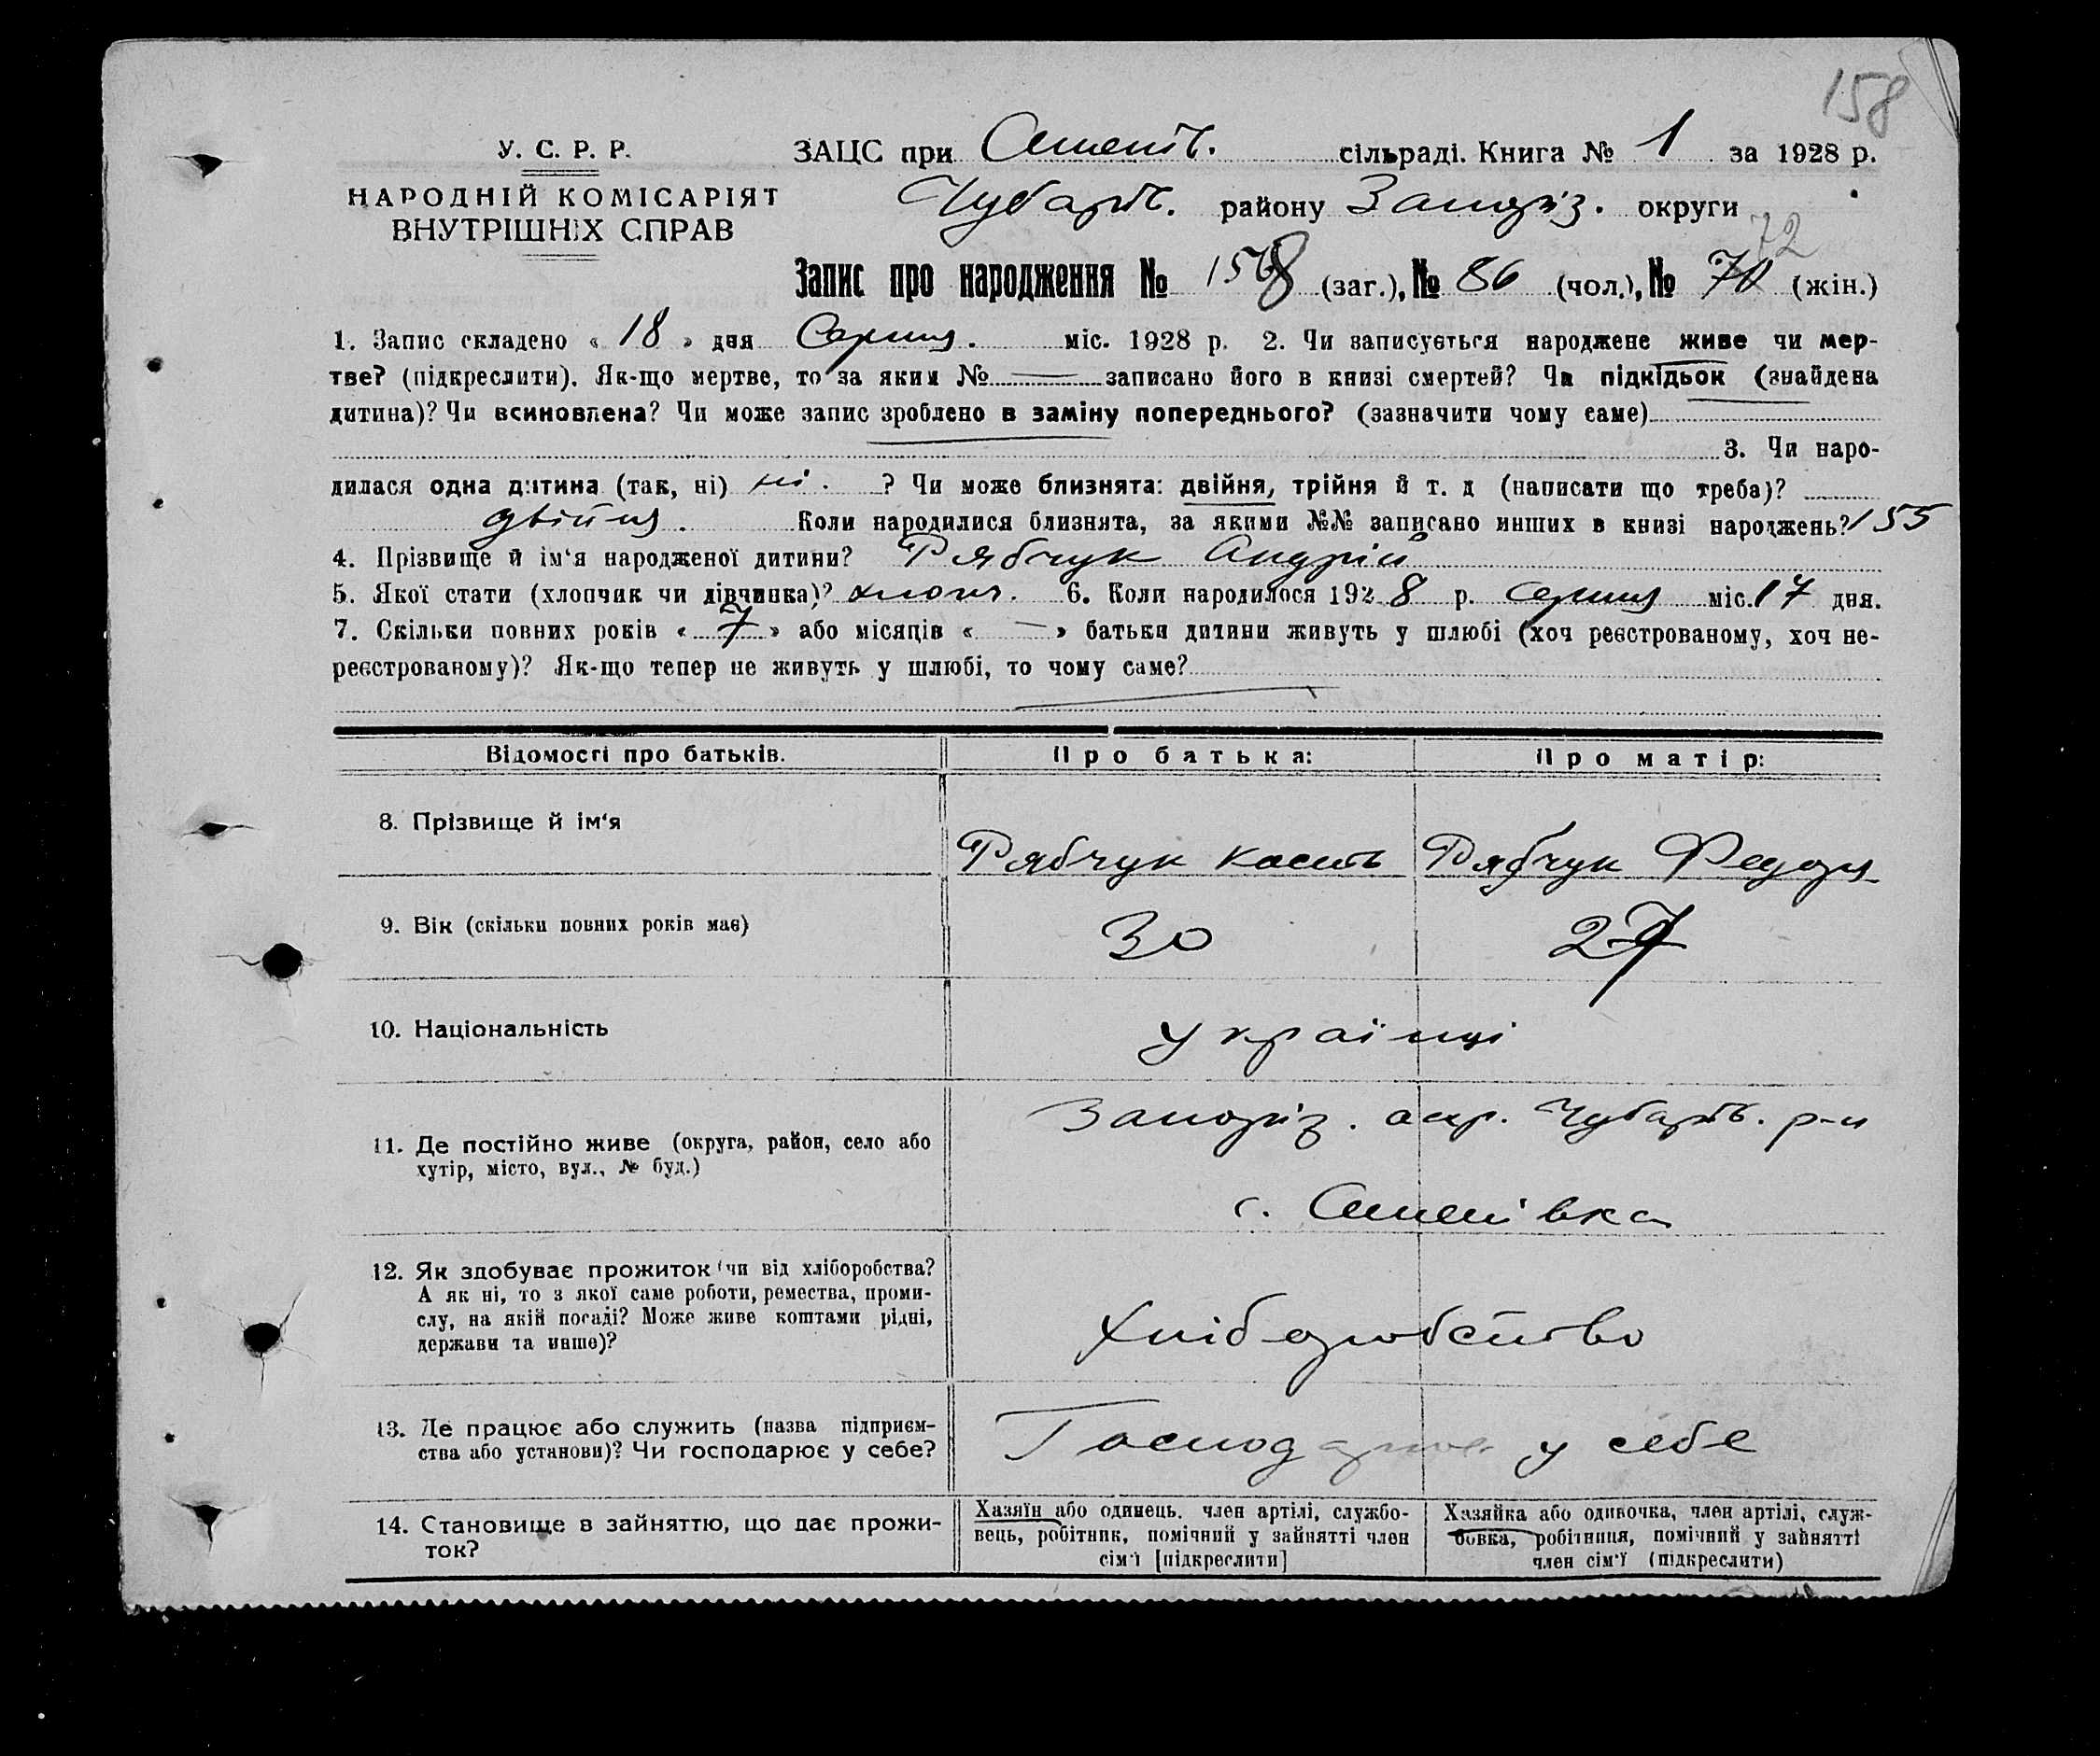 158
У. С. Р. Р.
НАРОДНІЙ КОМІСАРІЯТ
ВНУТРІШНІХ СПРАВ
ЗАЦС при сільраді. Книга № 1 за 1928 р.
Чубарів. району Запоріз. округи
72
Запис про народження № 158 (заг.), № 86 (чол.), № (жін.)
1. Запис складено « 18 » дня Серпня. міс. 1928 р. 2. Чи записується народжене живе чи мер-
тве? (підкреслити). Як-що мертве, то за яким № — записано його в книзі смертей? Чи підкідьок (знайдена
дитина)? Чи всиновлена? Чи може запис зроблено в заміну попереднього? (зазначити чому саме)
3. Чи наро-
дилася одна дитина (так, ні) ні. ? Чи може близнята: двійня, трійня й т. д (написати що треба)?
двійня. Коли народилися близнята, за якими №№ записано инших в книзі народжень? 155
4. Прізвище й ім'я народженої дитини? Рябчук Андрій
5. Якої стати (хлопчик чи дівчинка)? хлопч. 6. Коли народилося 1928 р. серпня міс. 17 дня.
7. Скільки повних років « 7 » або місяців « — » батьки дитини живуть у шлюбі (хоч реєстрованому, хоч не-
реєстрованому)? Як-що тепер не живуть у шлюбі, то чому саме?
Відомості про батьків. Про батька: Про матір:
8. Прізвище й ім'я
Рябчук Кость Рябчук Федора
9. Вік (скільки повних років має) 30 27
10. Національність українці
Запоріз. окр. Чубарів. р-н
11. Де постійно живе (округа, район, село або
хутір, місто, вул., № буд.)
с.
12. Як здобуває прожиток (чи від хліборобства?
А як ні, то з якої саме роботи, ремества, проми-
слу, на якій посаді? Може живе коштами рідні,
держави та инше)?
Хліборобство
13. Де працює або служить (назва підприєм-
ства або установи)? Чи господарює у себе?
Господарює у себе
14. Становище в зайняттю, що дає прожи-
ток?
Хазяїн або одинець, член артілі, службо-
вець, робітник, помічний у зайнятті член
сім'ї [підкреслити]
Хазяйка або одиночка, член артілі, служ-
бовка, робітниця, помічний у зайнятті
член сім'ї (підкреслити)